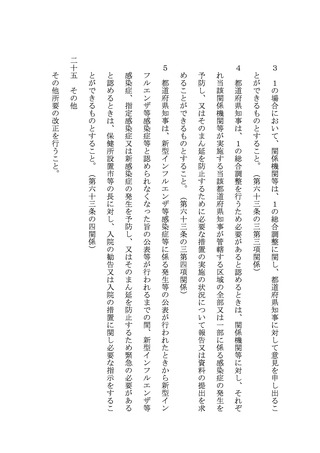 ３　１の場合において、関係機関等は、１の総合調整に関し、都道府県知事に対して意見を申し出るこ
とができるものとすること。（第六十三条の三第三項関係）
４　都道府県知事は、１の総合調整を行うため必要があると認めるときは、関係機関等に対し、それぞ
れ当該関係機関等が実施する当該都道府県知事が管轄する区域の全部又は一部に係る感染症の発生を
予防し、又はそのまん延を防止するために必要な措置の実施の状況について報告又は資料の提出を求
めることができるものとすること。（第六十三条の三第四項関係）
５　都道府県知事は、新型インフルエンザ等感染症等に係る発生等の公表が行われたときから新型イン
フルエンザ等感染症等と認められなくなった旨の公表等が行われるまでの間、新型インフルエンザ等
感染症、指定感染症又は新感染症の発生を予防し、又はそのまん延を防止するため緊急の必要がある
と認めるときは、保健所設置市等の長に対し、入院の勧告又は入院の措置に関し必要な指示をするこ
とができるものとすること。（第六十三条の四関係）
二十五　その他
その他所要の改正を行うこと。